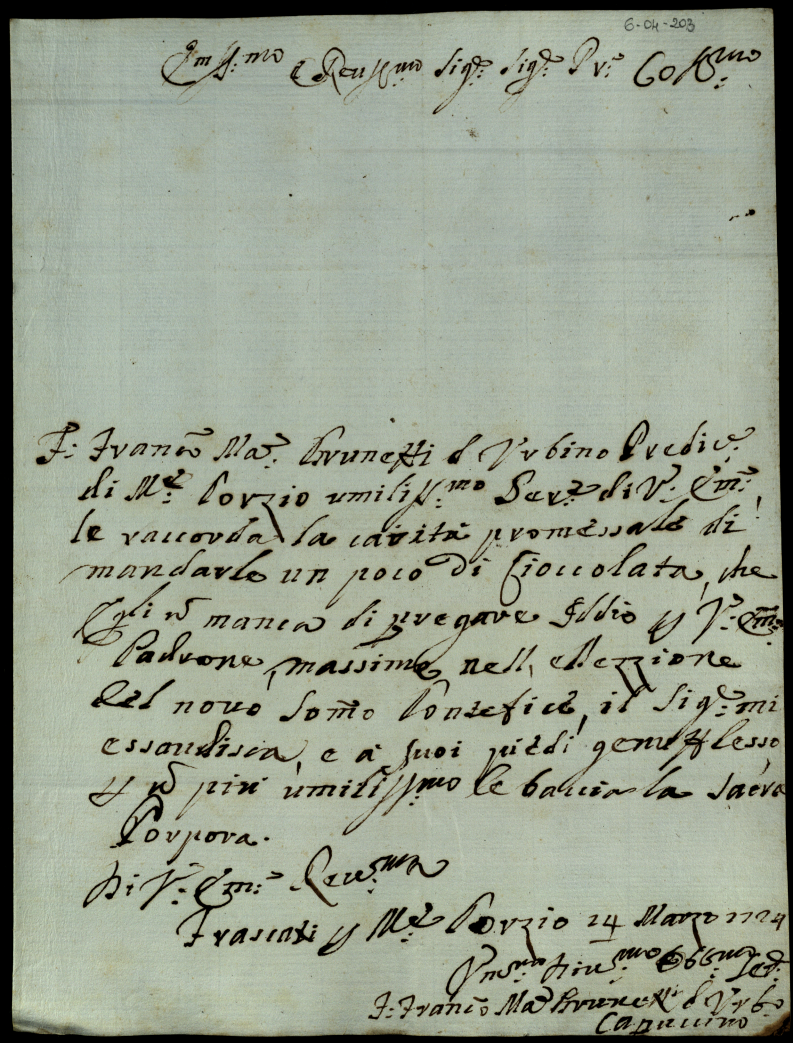 6-04-203
Em.mo e Reu.mo Sig.e Sig.e Pr.e Col.mo
F: Franco Ma: Brunetti d Vrbino Predic.e
di M.e Porzio umiliss.mo Ser.e di V: Em:
le raccorda la carità promessale di
mandarle un poco di Cioccolata, che
egli no manca di pregare Iddio p V: Em:
Padrone, massime nell, ellezzione
del novo Somo Pontefice, il Sig.e mi
essaudisca, e a suoi piedi genufflesso
p no più umilissmo le baccia la sacra
Porpora.
Di V: Em: Reu.ma
Frascati p M.e Porzio 24 Marzo 1724
Diu.mo Obb.mo
F: Franco Ma Brunetti d Vrbo
Capuccino